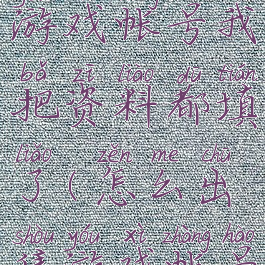 游戏帐号我
bǎ zī liào dū tián
把资料都填
liǎo zěn me chū
了(怎么出
shòu yóu xì zhàng hào